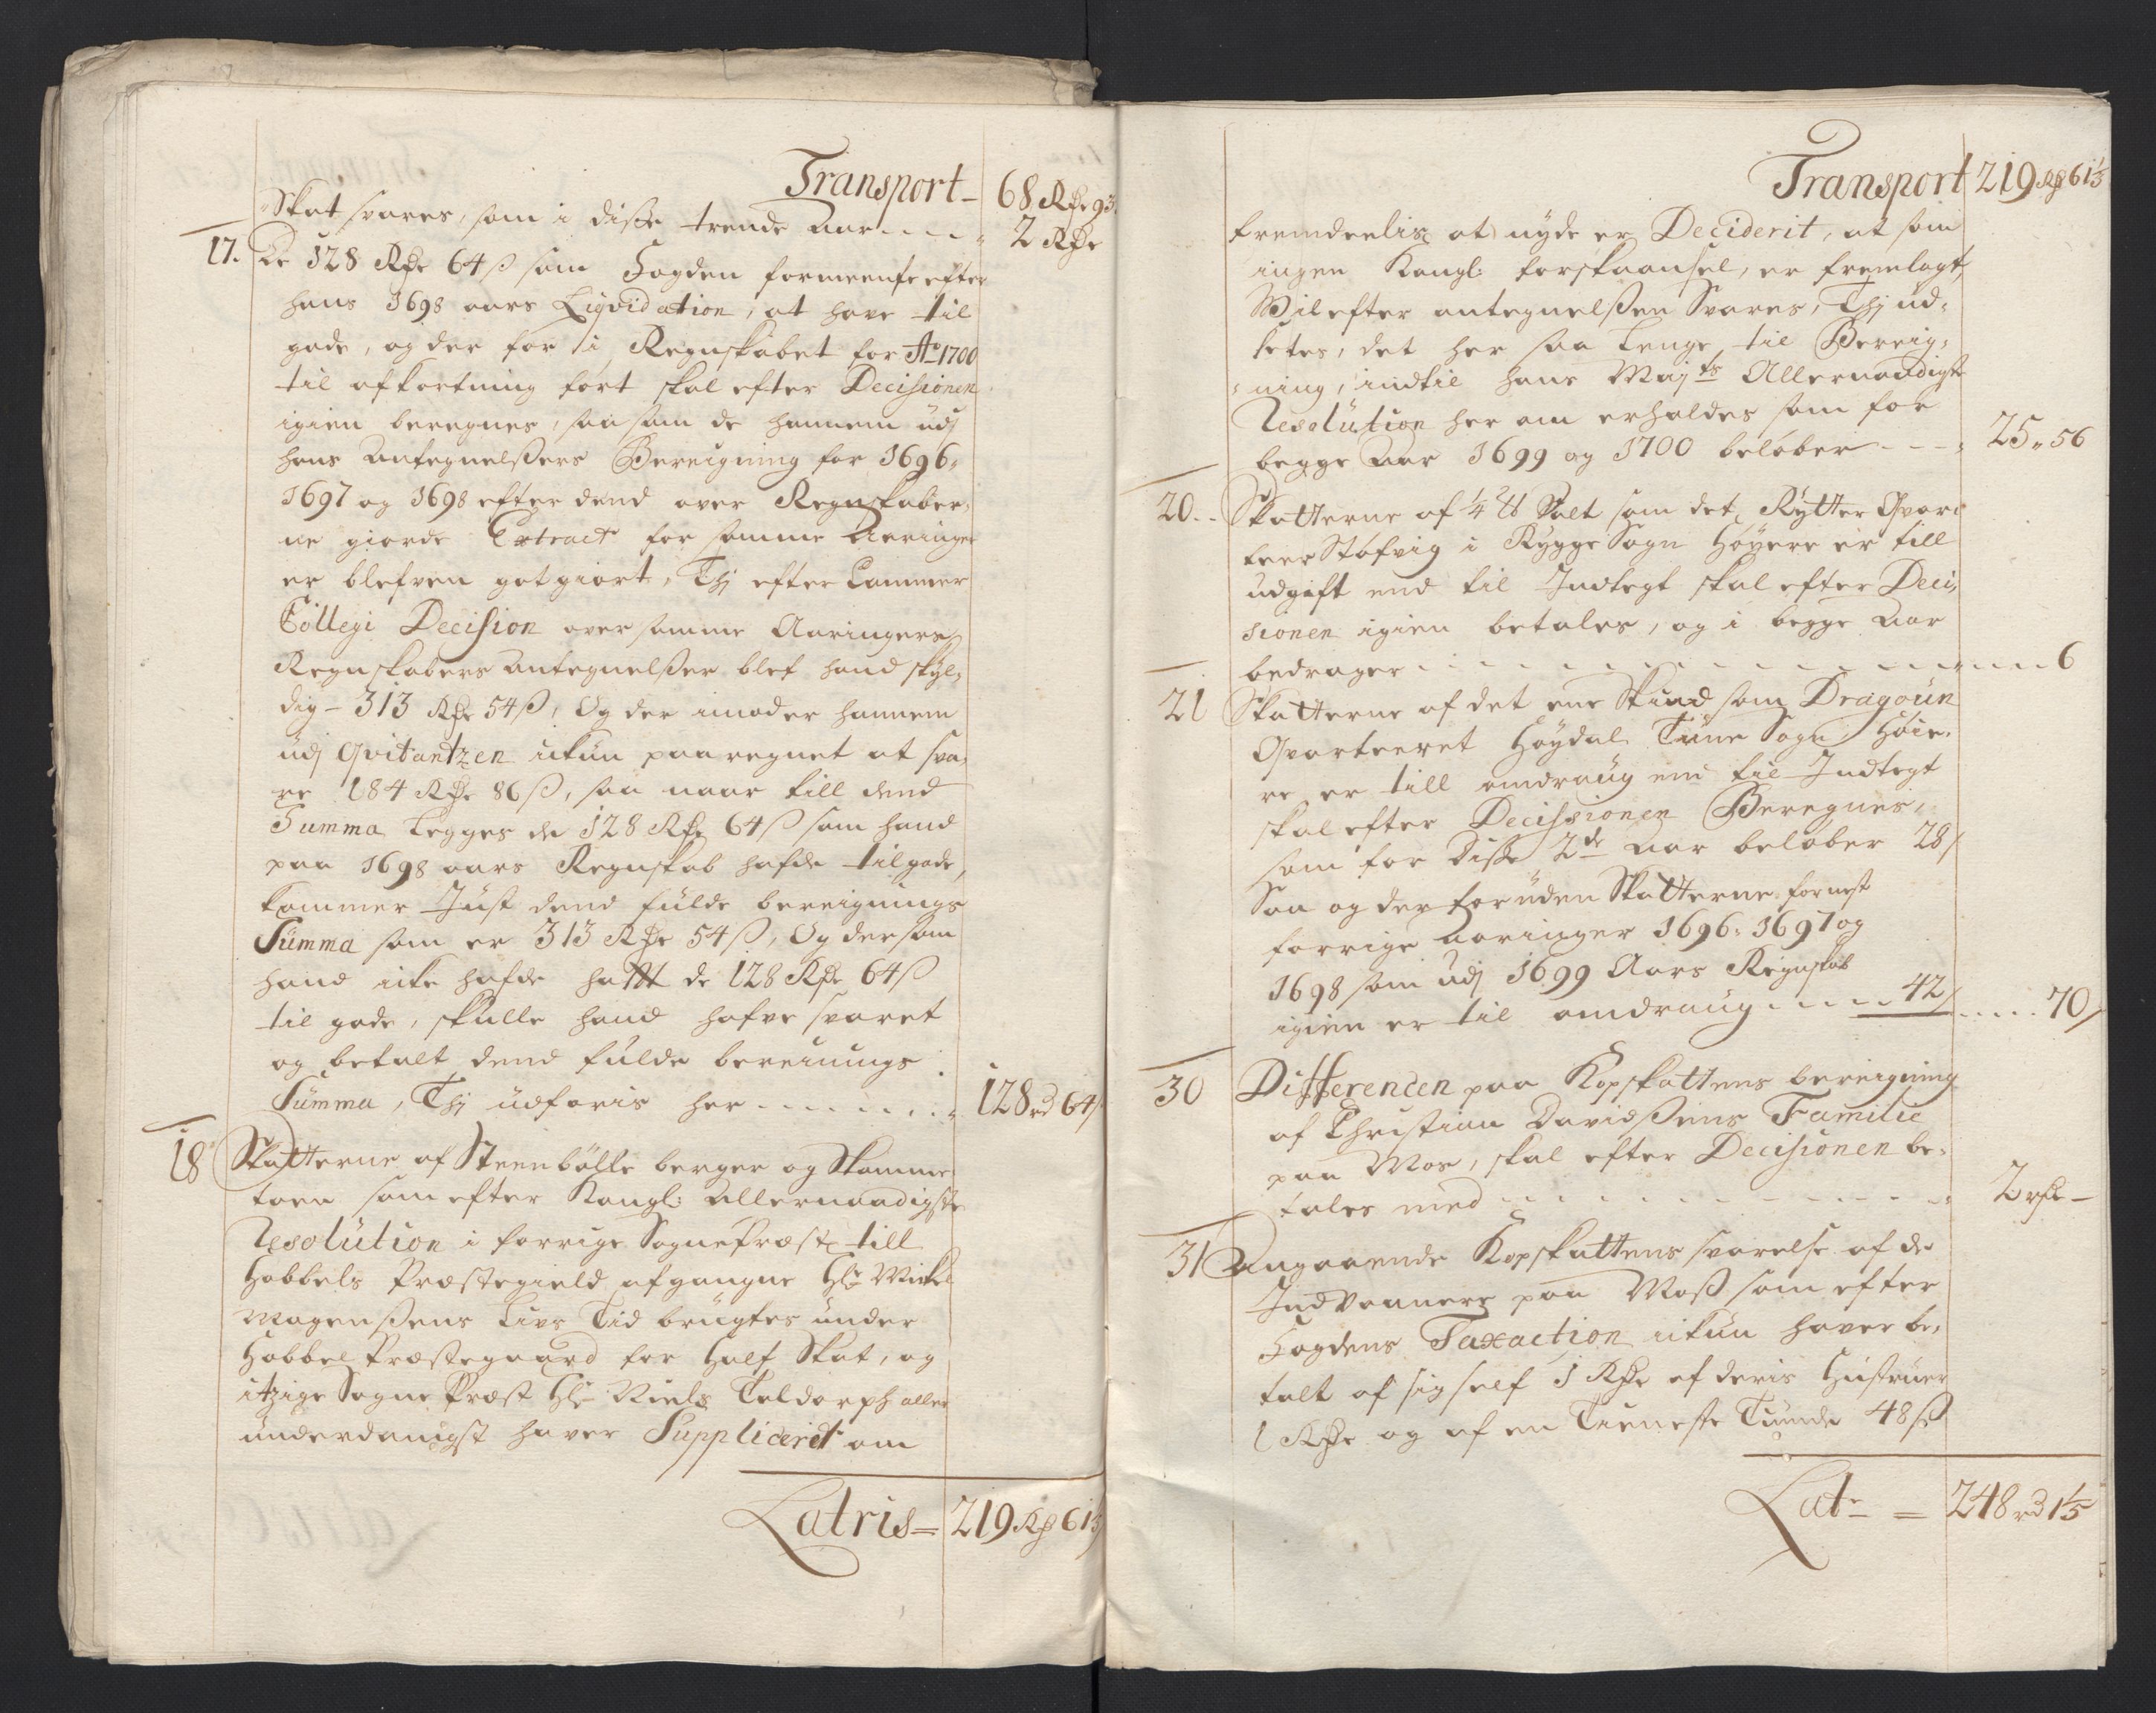 Transport – 68 Rdr 93
Skat svares, som i disse trende Aar - - - - 2 Rdr
17. De 128 Rdr 64 ß som Fogden formeente efter
hans 1698 aars Liqvidation, at have til
gode, og der for i Regnskabet for Ao 1700
til afkortning ført skal efter Decisionen
igien beregnes, saa som de hannem udj
hans Antegnelßers Bereigning for 1696,
1697 og 1698 efter dend over Regnskaber,
ne giorde Extract for samme Aaringer
er blefven gotgiort, Thj efter Cammer
Collegi Decision over samme Aaringers
Regnskabers Antegnelßer blef hand skyl,
dig – 313 Rdr 54 ß, Og der imoder hannem
udj Qvitantzen ickun paaregnet at sva,
re 184 Rdr 86 ß, saa naar till dend
Summa Legges de 128 Rdr 64 ß som hand
paa 1698 aars Regnskab hafde tilgode,
kommer Just dend fulde bereignings
Summa som er 313 Rdr 54 ß, Og dersom
hand icke hafde hatt de 128 Rdr 64 ß
til gode, skulle hand hafve svaret
og betalt dend fulde bereinings
Summa, Thj udføris her - - - - - - 128 rd 64 ß
18 Skatterne af Steenbølle berger og Skamme
toen som efter Kongl: Allernaadigste
Resolution i forrige Sognepræst till
Hobbels Præstegield afgangne Hlr Mickel
Magenßens Livs Tid brugtes under
Hobbel Præstegaard for Half Skat, og
itzige Sogne Præst Hlr Niels Toldorph aller
underdanigst haver Supplicerit om
Latris = 219 Rdr 61⅕
Transport 219 Rdr 61⅕
fremdeelis at nyde er Deciderit, at som
ingen Kongl: forskaansel, er fremlagt,
Vil efter antegnelßen Svares, Thj ud,
settes, det her saa Lenge til Bereig,
ning, indtil hans Majts Allernaadigste
Resolution her om erholdes som for
begge Aar 1699 og 1700 beløber - - - 25 „ 56
20. Skatterne af ¼ ℔ Salt som det Rytter Qvar
teer Støfvig i Rygge Sogn Høyere er till
udgift end til Indtegt skal efter Deci,
sionen igien betales, og i begge Aar
bedrager - - - - - - - - - - - - 6
21 Skatterne af det ene Skind som Dragoun
Qvarteeret Høydal Tune Sogn Høie,
re er till omdraug end til Indtegt
skal efter Decissionen Beregnes,
som for disse 2de Aar beløber 28 ß
Saa og der foruden Skatterne for nest
forrige Aaringer 1696: 1697 og
1698 som udj 1699 Aars Regnskab
igien er til omdraug - - - - - 42 ß - - - - 70 ß
30 Differencen paa Kopskattens bereigning
af Christian Davidßens Familie
paa Mos, skal efter Decisionen be,
tales med - - - - - - - - - - 2 rdr –
31 Angaaende Kopskattens svarelse af de
Indvaanere paa Moß som efter
Fogdens Taxaction ickun haver be,
talt af sig self 1 Rdr af deris Hustruer
1 Rdr og af en Tieneste Tiende 48 ß
Lat– = 248 rd 1⅕